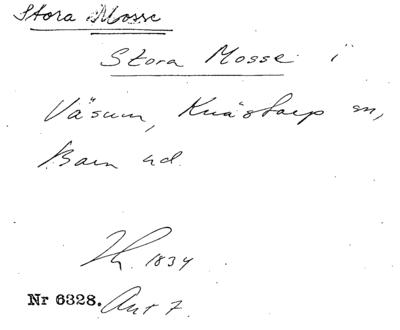 Stora Mosse
Stora Mosse i
Väsum, Knästorp sn,
Bara hd.
1834
Nr 6328. Ant 7.